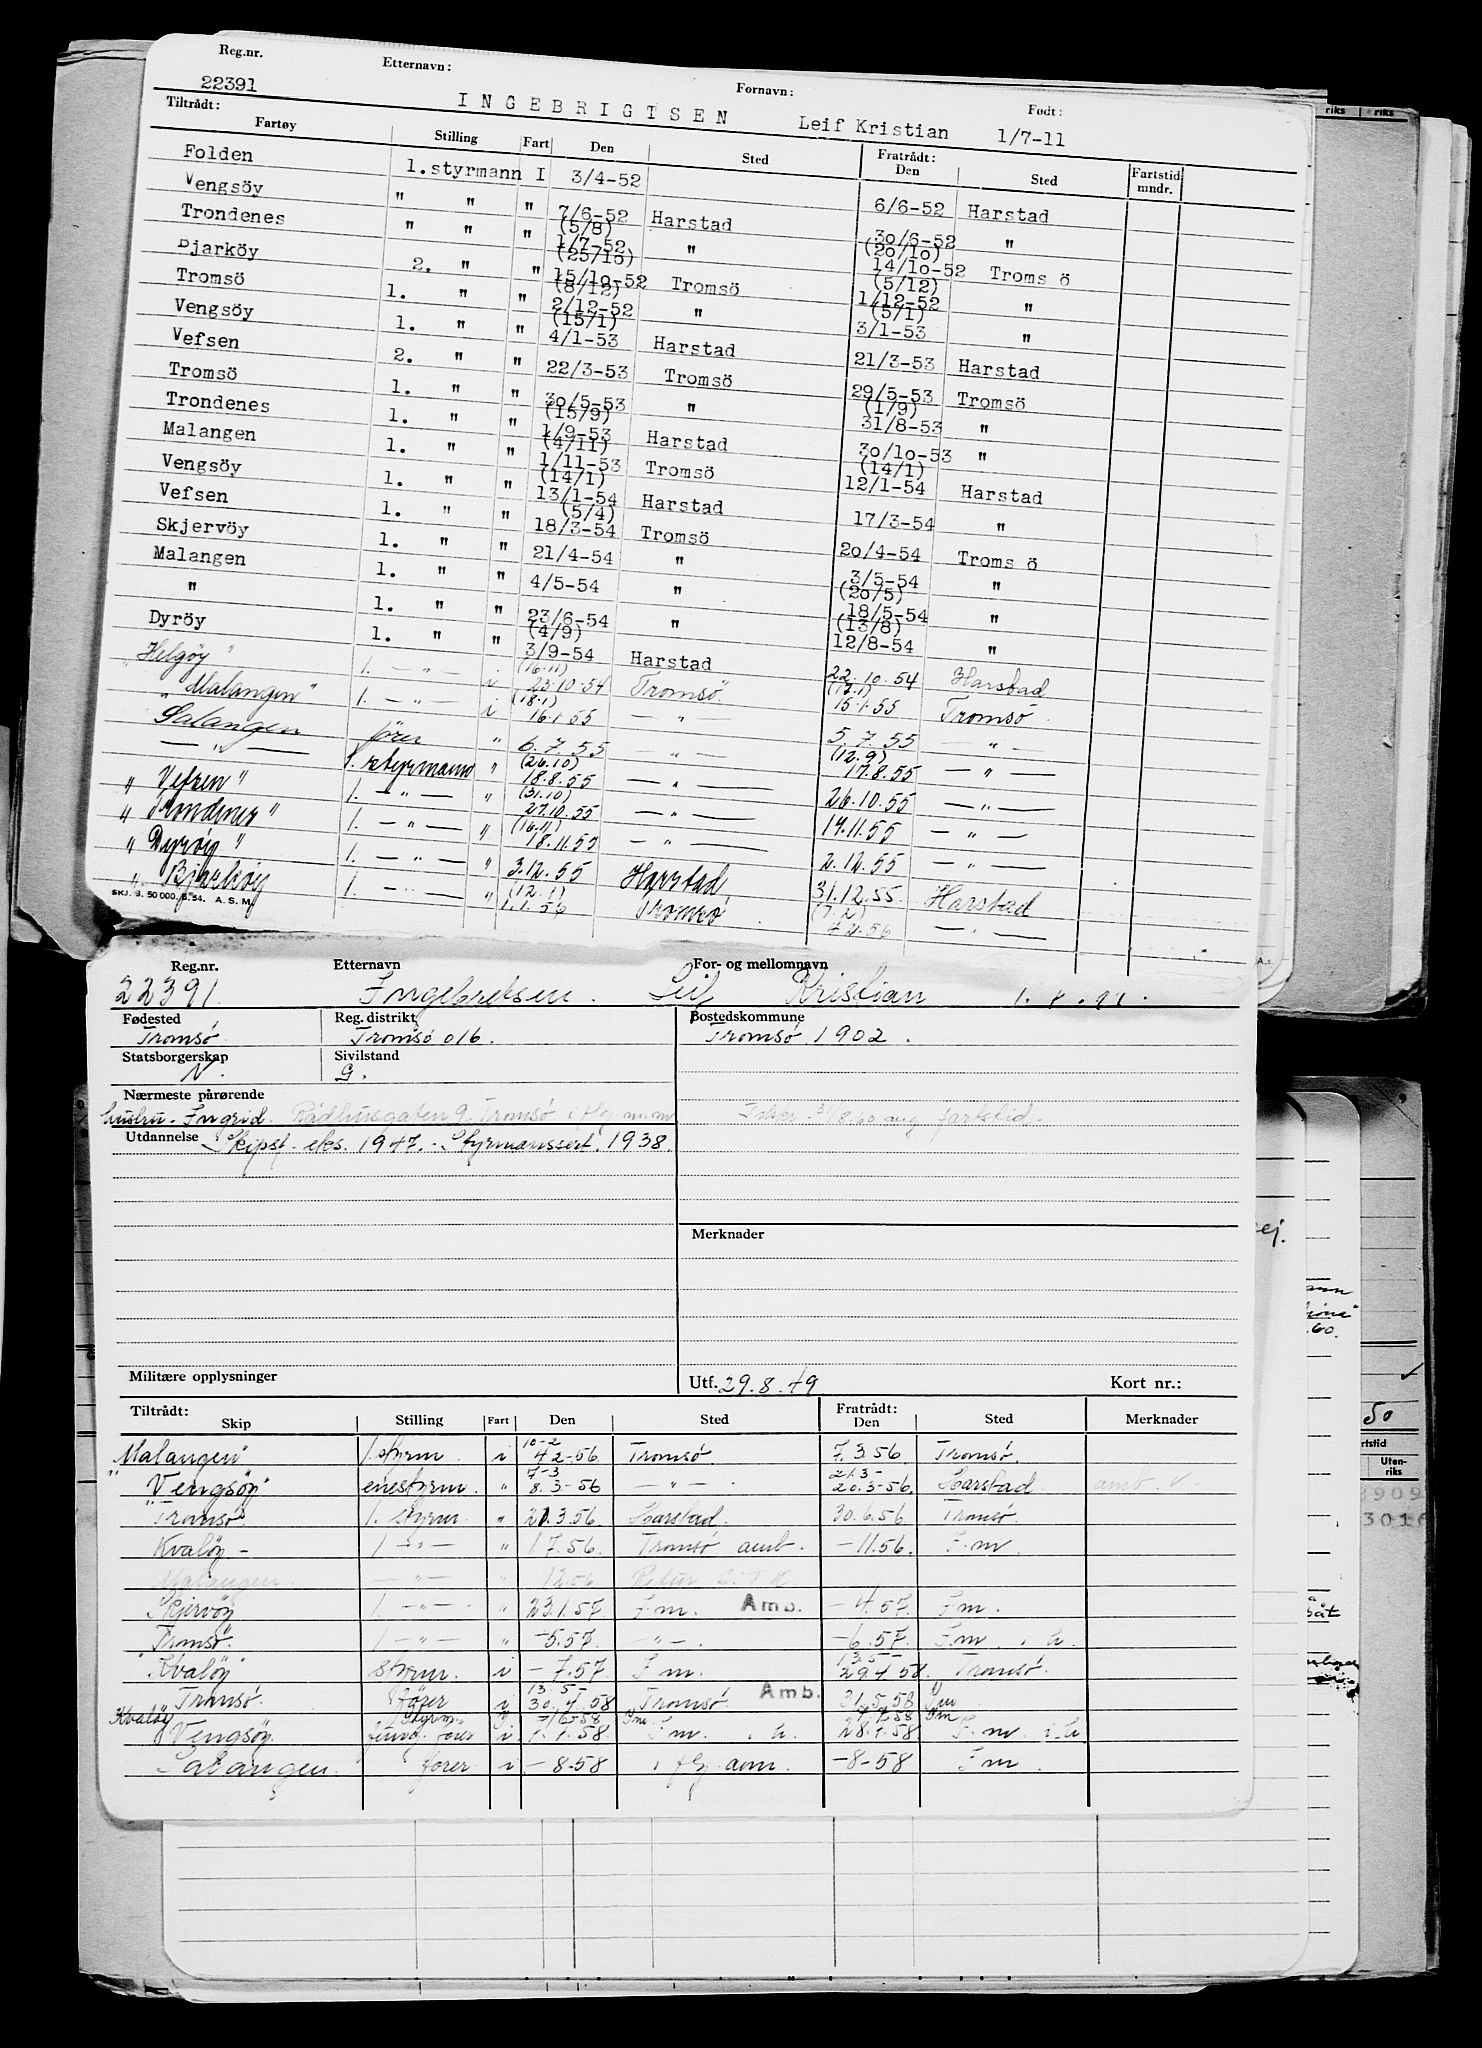 Reg.nr. Etternavn: Fornavn: Født:
22391 INGEBRIGTSEN Leif Kristian 1/7-11
Tiltrådt: Fratrådt:
Fartøy Stilling Fart Den Sted Den Sted Fartstid mndr.
Folden 1.styrmann I 3/4-52 6/6-52 Harstad
Vengsöy " " " 7/6-52 Harstad 30/6-52 "
(5/8) (20/10)
Trondenes " " " 1/7-52 " 14/10-52 Troms ö
(25/10) (5/12)
Bjarköy 2. " " 15/10-52 Tromsö 1/12-52 "
(8/12) (5/1)
Tromsö 1. " " 2/12-52 " 3/1-53 "
(15/1)
Vengsöy 1. " " 4/1-53 Harstad 21/3-53 Harstad
Vefsen 2. " " 22/3-53 Tromsö 29/5-53 Tromsö
(1/9)
Tromsö 1. " " 30/5-53 " 31/8-53 "
(15/9)
Trondenes 1. " " 1/9-53 Harstad 30/10-53 "
(4/11) (14/1)
Malangen 1. " " 1/11-53 Tromsö 12/1-54 Harstad
(14/1)
Vengsöy 1. " " 13/1-54 Harstad 17/3-54 "
(5/4)
Vefsen 1. " " 18/3-54 Tromsö 20/4-54 Troms ö
Skjervöy 1. " " 21/4-54 " 3/5-54 "
(20/5)
Malangen 1. " " 4/5-54 " 18/5-54 "
(13/8)
" 1. " " 23/6-54 " 12/8-54 "
(4/9)
Dyröy 1. " " 3/9-54 Harstad 22.10.54 Harstad
(16.11) (17.1)
"Helgöy" 1. — " — i 23.10.54 Tromsø 15.1.55 Tromsø
(18.1)
"Malangen" 1. — " — i 16.1.55 — " — 5.7.55 — " —
(12.9)
Salangen fører " 6.7.55 — " — 17.8.55 — " —
(26.10)
— " — 1. styrmann " 18.8.55 — " — 26.10.55 — " —
(31.10)
"Vefsen" 1. — " — " 27.10.55 — " — 17.11.55 — " —
(16.11)
"Trondenes" 1. — " — " 18.11.55 — " — 2.12.55 — " —
"Dyröy" 1. — " — " 3.12.55 Harstad 31.12.55 Harstad
(12.1) (7.2)
"Bjarköy 1. — " — " 1.1.56 Tromsø 4.2.56 — " —
SKJ. 3. 50 000. 5. 54. A. S. M.
Reg.nr. Etternavn For- og mellomnavn
22391. Ingebretsen. Leif Kristian
Fødested Reg. distrikt Bostedskommune
Tromsø Tromsø 016. Tromsø 1902.
Statsborgerskap Sivilstand
N. G.
Nærmeste pårørende
hustru. Ingrid. Rådhusgaten 9. Tromsø
Utdannelse Skipsf. eks. 1947. Styrmannssert. 1938.
Merknader
Militære opplysninger Utf. 29.8.49 Kort nr.:
Tiltrådt: Fratrådt:
Skip Stilling Fart Den Sted Den Sted Merknader
10-2
Malangen" 1 styrm i 4.2-56 Tromsø 7.3.56 Tromsø.
7-3 21.3-
"Vengsøy" enestyrm. " 8.3-56 — " — 20.3-56. Harstad
"Tromsø" 1. styrm. " 21.3.56 Harstad. 30.6.56 Tromsø.
Kvaløy - 1 — " — " 1 7.56. Tromsø amb. -11.56. F.m.
Malangen — " — " 12.56
Skjervøy 1. — " — " 23.1.57 F.m. Amb. -4.57. F.m.
Tromsø. 1 — " — " -5.57. " — . -6.57. F.m.
13.5-
"Kvaløy" styrm. i -7.57. F.m. 29.4.58. Tromsø.
13.5-
Tromsø. fører i 30.4.58 Tromsø. Amb. 31.5.58
Kvaløy styrm.
Vengsøy. fører i F.m. F.m.
Salangen. fører i -8-58 -8-58 F.m.